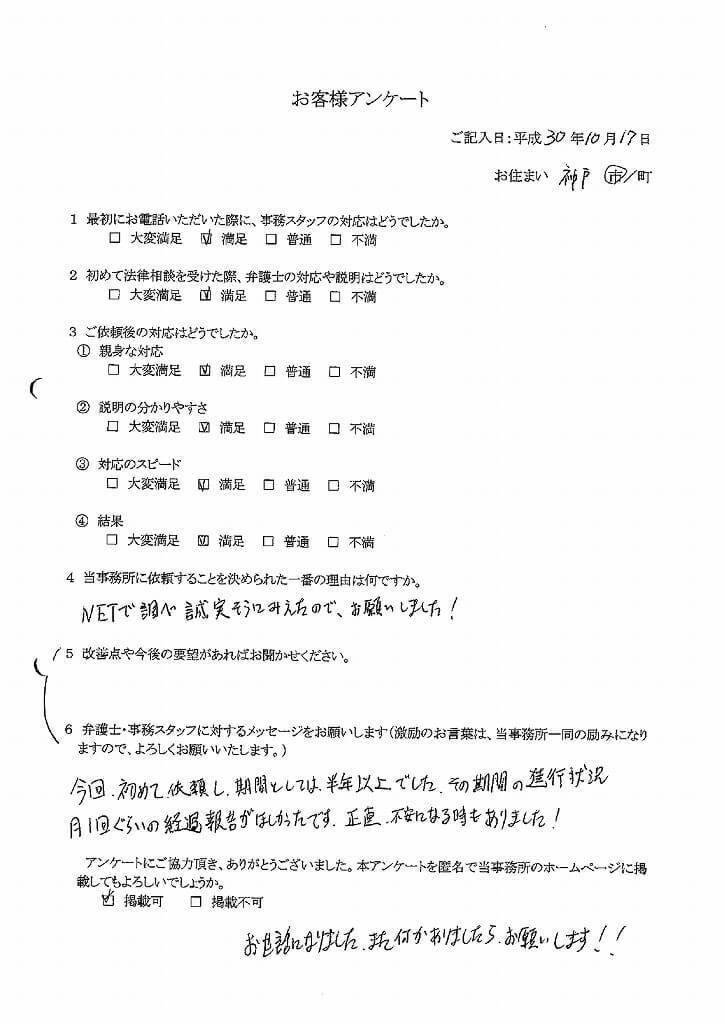 お客様アンケート
ご記入日:平成30年10月17日
お住まい 神戸 市/町
1 最初にお電話いただいた際に、事務スタッフの対応はどうでしたか。
□ 大変満足 ☑ 満足 □ 普通 □ 不満
2 初めて法律相談を受けた際、弁護士の対応や説明はどうでしたか。
□ 大変満足 ☑ 満足 □ 普通 □ 不満
3 ご依頼後の対応はどうでしたか。
① 親身な対応
□ 大変満足 ☑ 満足 □ 普通 □ 不満
② 説明の分かりやすさ
□ 大変満足 ☑ 満足 □ 普通 □ 不満
③ 対応のスピード
□ 大変満足 ☑ 満足 □ 普通 □ 不満
④ 結果
□ 大変満足 ☑ 満足 □ 普通 □ 不満
4 当事務所に依頼することを決められた一番の理由は何ですか。
NETで調べ誠実そうにみえたので、お願いしました!
5 改善点や今後の要望があればお聞かせください。
6 弁護士・事務スタッフに対するメッセージをお願いします(激励のお言葉は、当事務所一同の励みになり
ますので、よろしくお願いいたします。)
今回、初めて依頼し、期間としては、半年以上でした。その期間の進行状況
月1回ぐらいの経過報告がほしかったです。正直、不安になる時もありました!
アンケートにご協力頂き、ありがとうございました。本アンケートを匿名で当事務所のホームページに掲
載してもよろしいでしょうか。
☑ 掲載可 □ 掲載不可
お世話になりました。また何かありましたら、お願いします!!